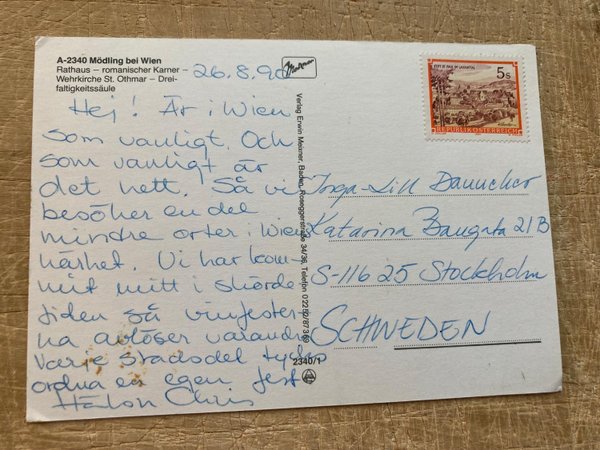 A-2340 Mödling bei Wien
Rathaus – romanischer Karner –
Wehrkirche St. Othmar – Drei-
faltigkeitssäule
26.8.90
Hej! Är i Wien
som vanligt. Och
som vanligt är
det hett. Så vi
besöker en del
mindre orter i Wiens
närhet. Vi har kom-
mit mitt i skörde
tiden så vinfester-
na avlöser varandra
Varje stadsdel tycks
ordna en egen fest
Chris
Verlag Erwin Meixner, Baden, Roseggerstraße 34/36, Telefon
2340/1
5s
REPUBLIK ÖSTERREICH
Inga-Lill
Katarina Bangata 21B
S-116 25 Stockholm
SCHWEDEN